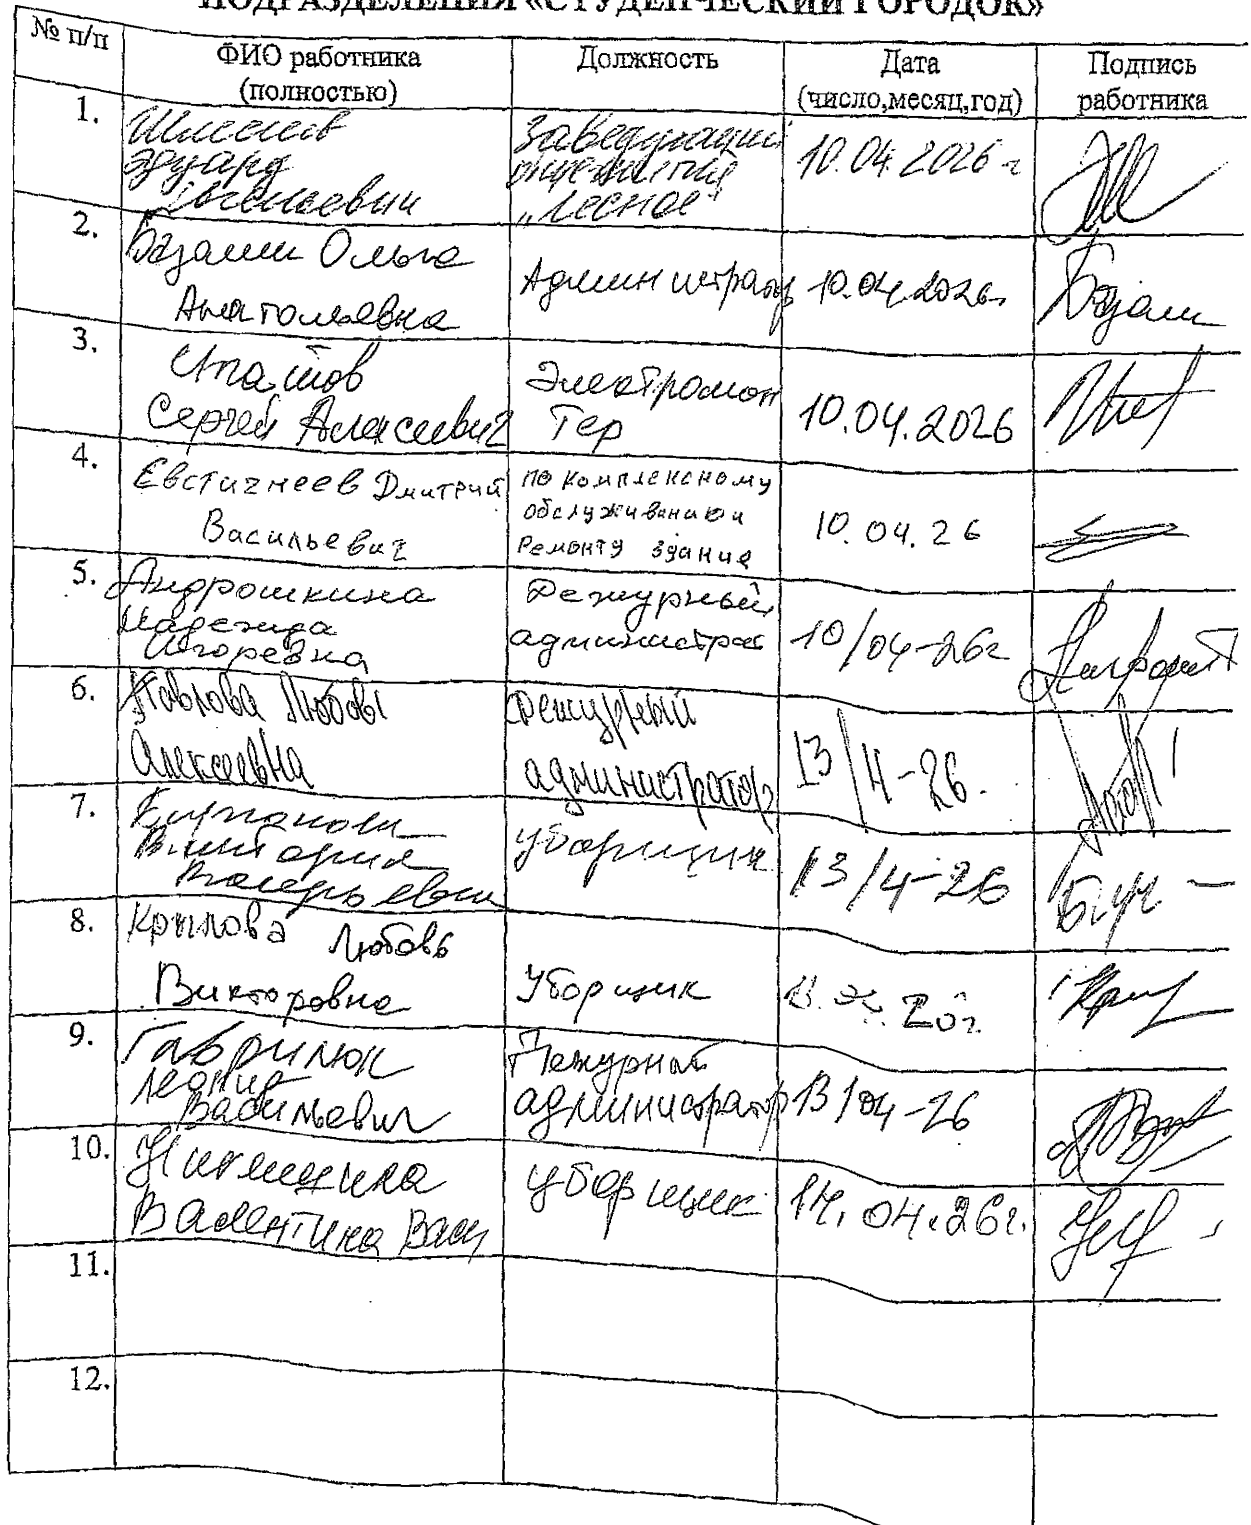 ПОДРАЗДЕЛЕНИЯ «СТУДЕНЧЕСКИЙ ГОРОДОК»
№ п/п ФИО работника (полностью) Должность Дата (число,месяц,год) Подпись работника
1.
Эдуард
Евгеньевич
Заведующий
общежития
„Лесное"
10.04.2026 г
2.
Базалии Ольга
Анатольевна
Администратор
10.04.2026г.
3.
Ипатов
Сергей Алексеевич
Электромон
тер
10.04.2026
4.
Евстигнеев Дмитрий
Васильевич
по комплексному
обслуживанию и
ремонту здания
10.04.26
5.
Андрошкина
Надежда
Игоревна
Дежурный
администрат
10/04-26г
6.
Павлова Любовь
Алексеевна
дежурный
администратор
13/4-26.
7.
Виктория
Валерьевна
уборщик
13/4-26
8.
Крылова Любовь
Викторовна
Уборщик
9.
Гаврилюк
Леонид
Васильевич
Дежурный
администратор
13/04-26
10.
Никишина
Валентина Вас
уборщик
14.04.26г.
11.
12.